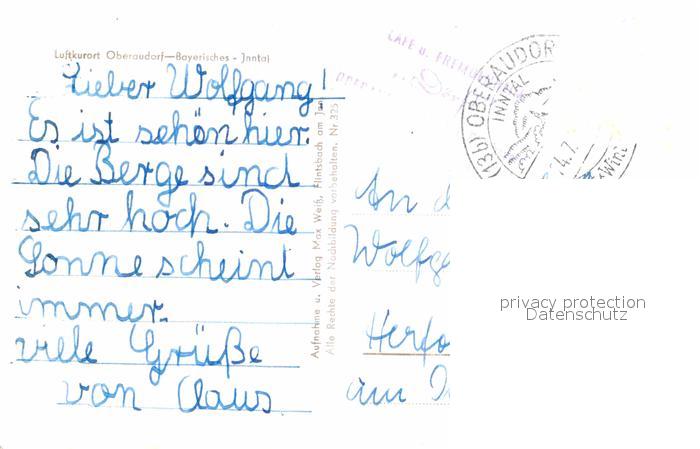 Luftkurort Oberaudorf—Bayerisches - Jnntal
Lieber Wolfgang!
Es ist schön hier.
Die Berge sind
sehr hoch. Die
Sonne scheint
immer.
viele Grüße
von Claus.
Aufnahme u. Verlag Max Weiß, Flintsbach am Jnn
Alle Rechte der Nachbildung vorbehalten. Nr. 325
CAFE u. FREMD
(13b) OBERAUDOR
INNTAL
4.7.
An d
Wolfga
Herfo
am
privacy protection
Datenschutz